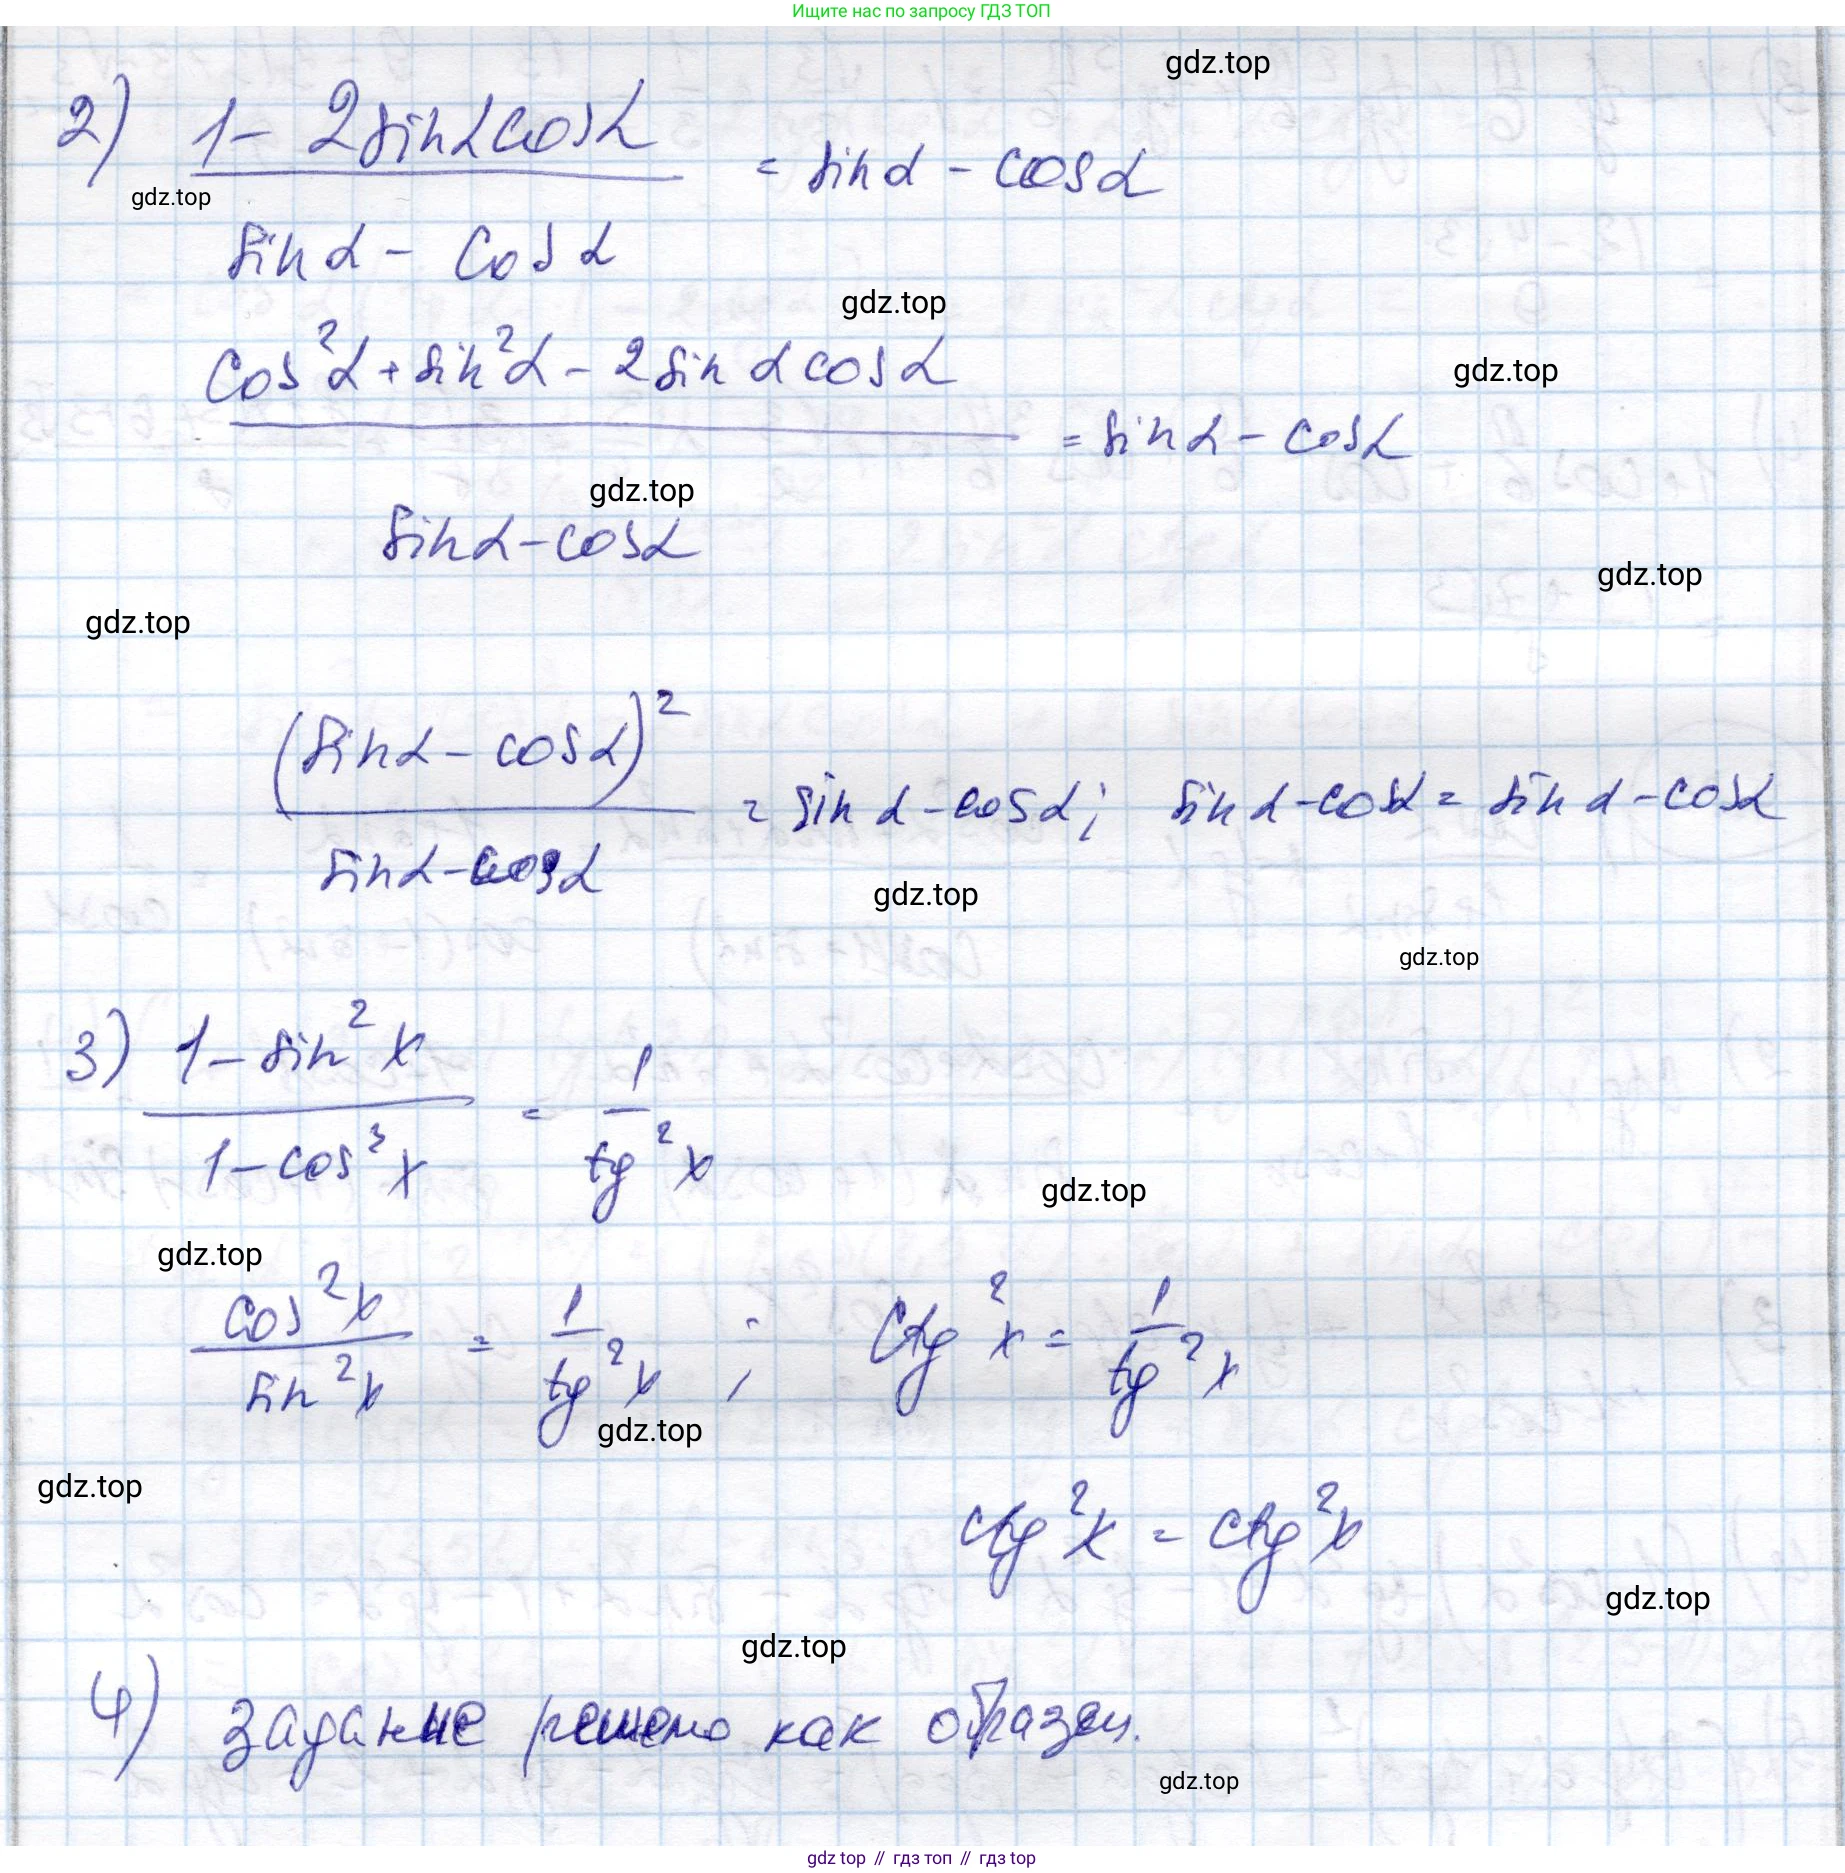 Ищите нас по запросу ГДЗ ТОП
gdz.top
2) (1 - 2 sin α cos α) / (sin α - cos α) = sin α - cos α
gdz.top
gdz.top
(cos² α + sin² α - 2 sin α cos α) / (sin α - cos α) = sin α - cos α
gdz.top
gdz.top
gdz.top
gdz.top
(sin α - cos α)² / (sin α - cos α) = sin α - cos α; sin α - cos α = sin α - cos α
gdz.top
gdz.top
3) (1 - sin² x) / (1 - cos³ x) = 1 / tg² x
gdz.top
gdz.top
cos² x / sin² x = 1 / tg² x ; ctg² x = 1 / tg² x
gdz.top
gdz.top
ctg² x = ctg² x
gdz.top
gdz.top
4) задание решено как образец.
gdz.top
gdz top // гдз топ // гдз top